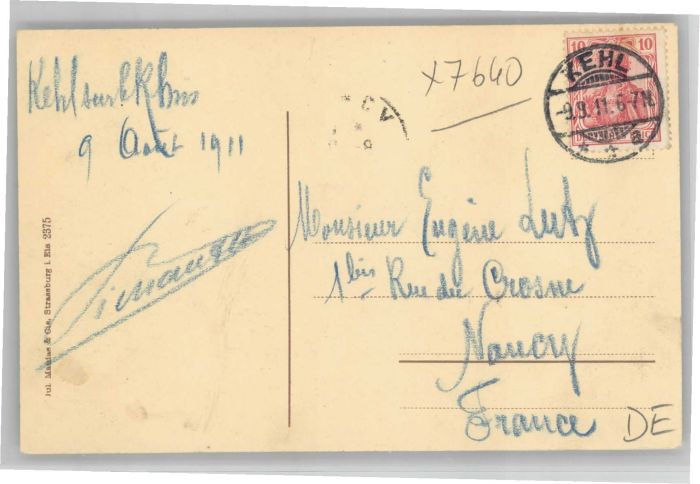 Kehl sur le Rhin
9 Aout 1911
x7640
10 10
KEHL
-9.8.11.6-7N.
* * a
Monsieur Eugène Lutz
1 bis Rue du Crosne
Nancy
France
DE
Jul. Manias & Cie. Strassburg i. Els 2375